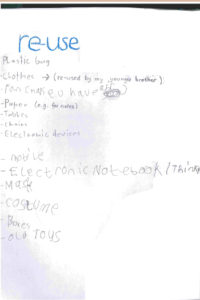 re-use
Plastic bag
-Clothes → (re-used by my younger brother)
-Pancake u have
-Paper (e.g. for notes)
-Tables
-chairs
-Electronic devices
- movie
-Electronic Notebook/Thing
-Mask
-costume
-Boxes
-old Toys